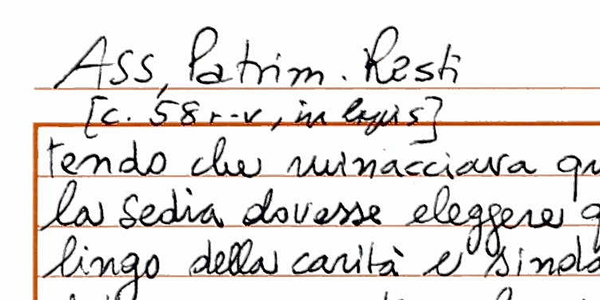 Ass. Patrim. Resti
[c. 58 r-v, in
tendo che minacciava qu
la Sedia dovesse eleggere q
lingo della carità e sinda